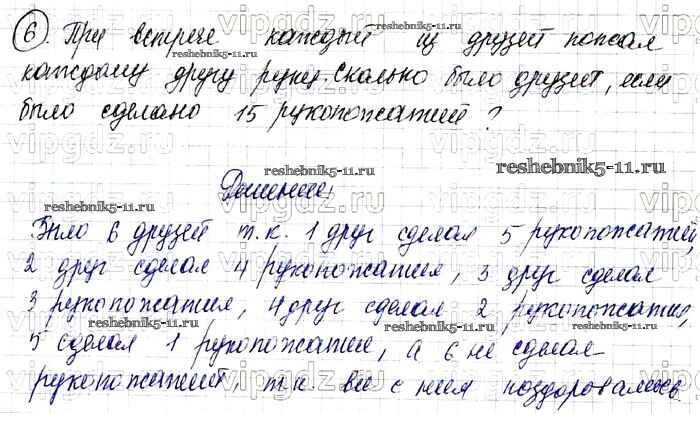 6. При встрече каждый из друзей пожал
каждому другу руку. Сколько было друзей, если
было сделано 15 рукопожатий?
Решение:
Было 6 друзей т.к. 1 друг сделал 5 рукопожатий,
2 друг сделал 4 рукопожатия, 3 друг сделал
3 рукопожатия, 4 друг сделал 2 рукопожатия,
5 сделал 1 рукопожатие, а 6 не сделал
рукопожатий, т.к. все с ним поздоровались.
reshebnik5-11.ru
reshebnik5-11.ru
reshebnik5-11.ru
reshebnik5-11.ru
reshebnik5-11.ru
reshebnik5-11.ru
reshebnik5-11.ru
vipgdz.ru